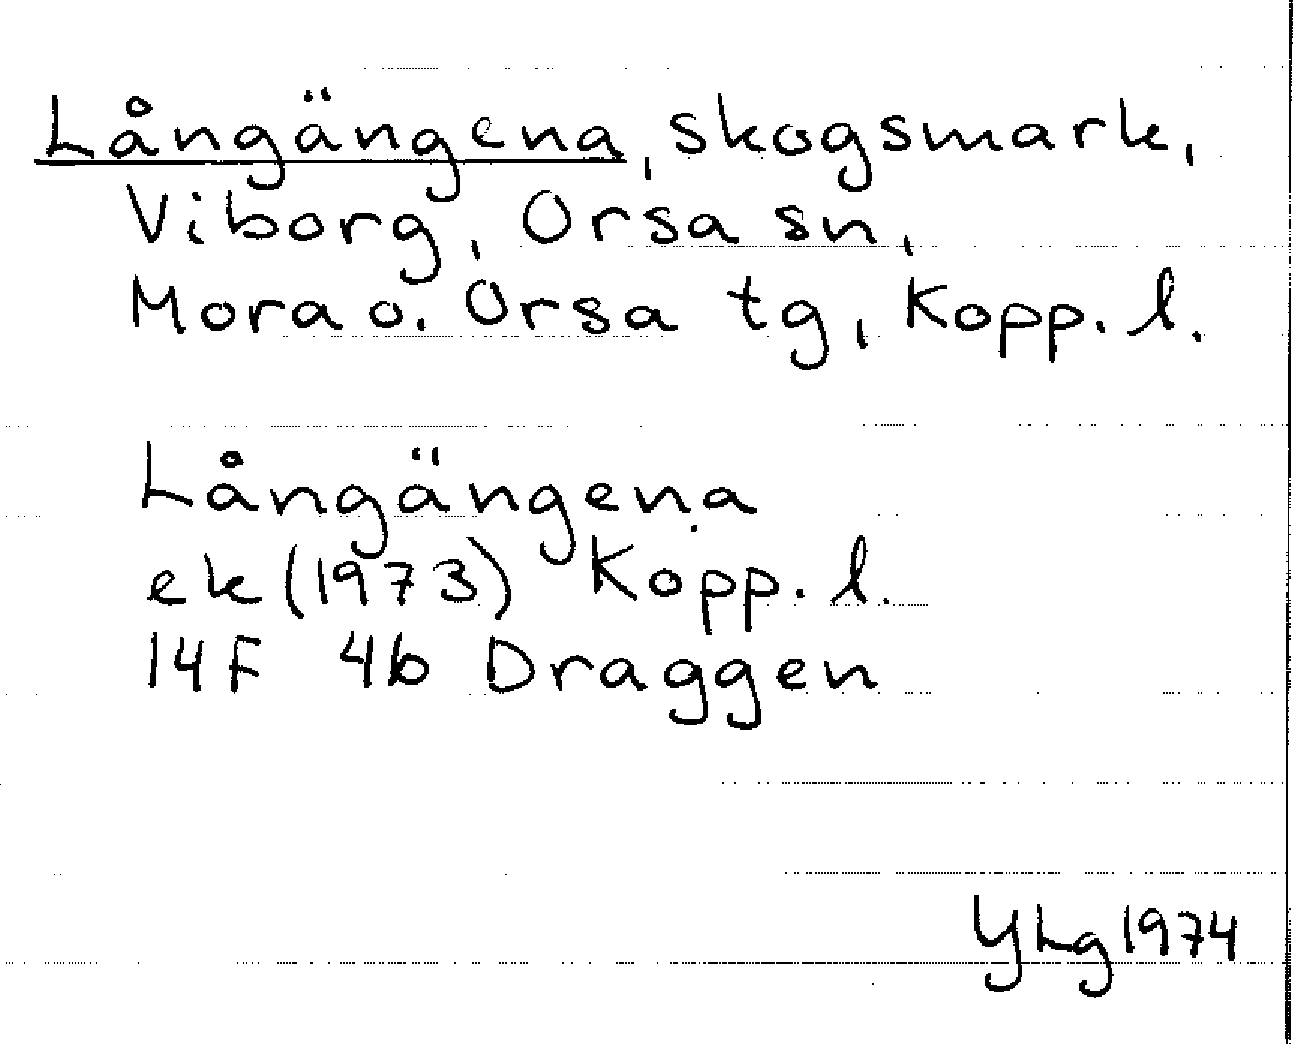 Långängena, skogsmark,
Viborg, Orsa sn,
Mora o. Orsa tg, Kopp. l.
Långängena
ek (1973) Kopp. l.
14F 4b Draggen
YLg 1974